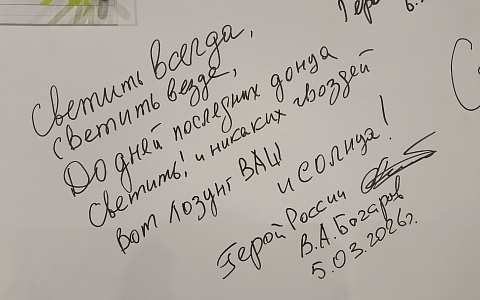 Геро
в.
Светить всегда,
светить везде,
До дней последних донца
Светить! и никаких гвоздей
Вот Лозунг ВАШ
и солнца!
Герой России
В.А. Богаров
5.03.2026г.